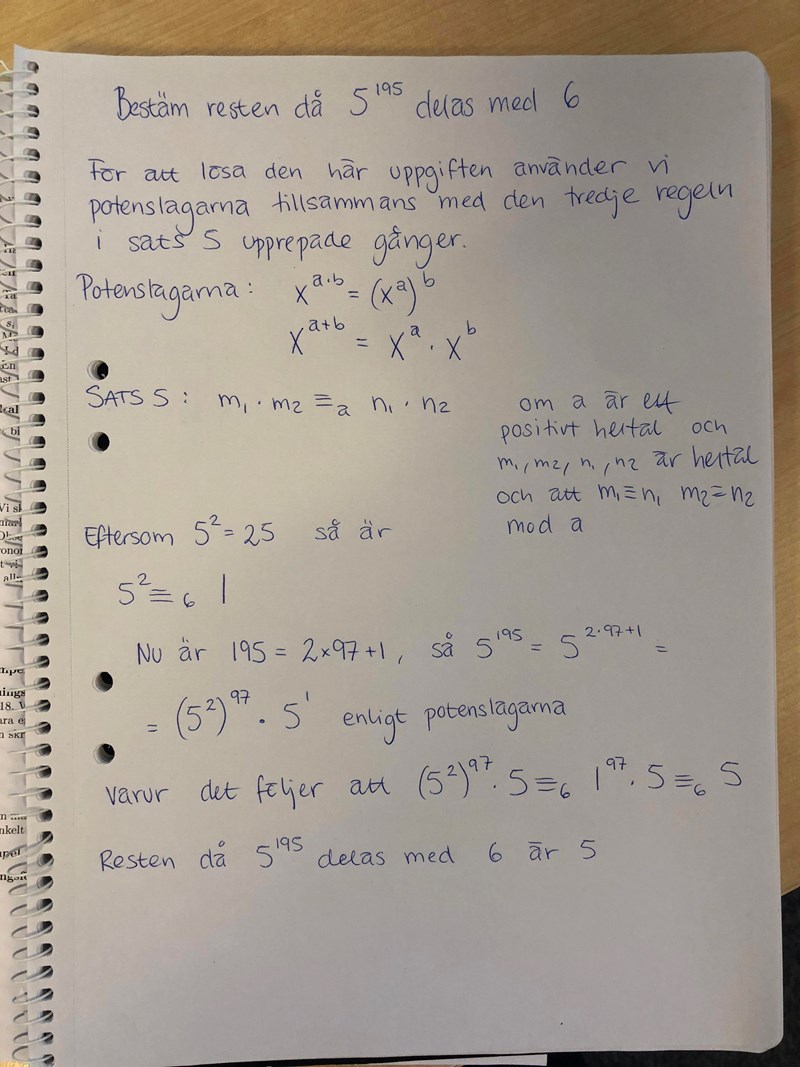 Bestäm resten då 5¹⁹⁵ delas med 6
För att lösa den här uppgiften använder vi
potenslagarna tillsammans med den tredje regeln
i sats 5 upprepade gånger.
Potenslagarna: x^(a·b) = (x^a)^b
x^(a+b) = x^a · x^b
SATS 5: m₁ · m₂ ≡ₐ n₁ · n₂
om a är ett
positivt heltal och
m₁, m₂, n₁, n₂ är heltal
och att m₁≡n₁ m₂≡n₂
mod a
Eftersom 5² = 25 så är
5² ≡₆ 1
Nu är 195 = 2×97+1, så 5¹⁹⁵ = 5^(2·97+1) =
= (5²)⁹⁷ · 5¹ enligt potenslagarna
Varur det följer att (5²)⁹⁷ · 5 ≡₆ 1⁹⁷ · 5 ≡₆ 5
Resten då 5¹⁹⁵ delas med 6 är 5